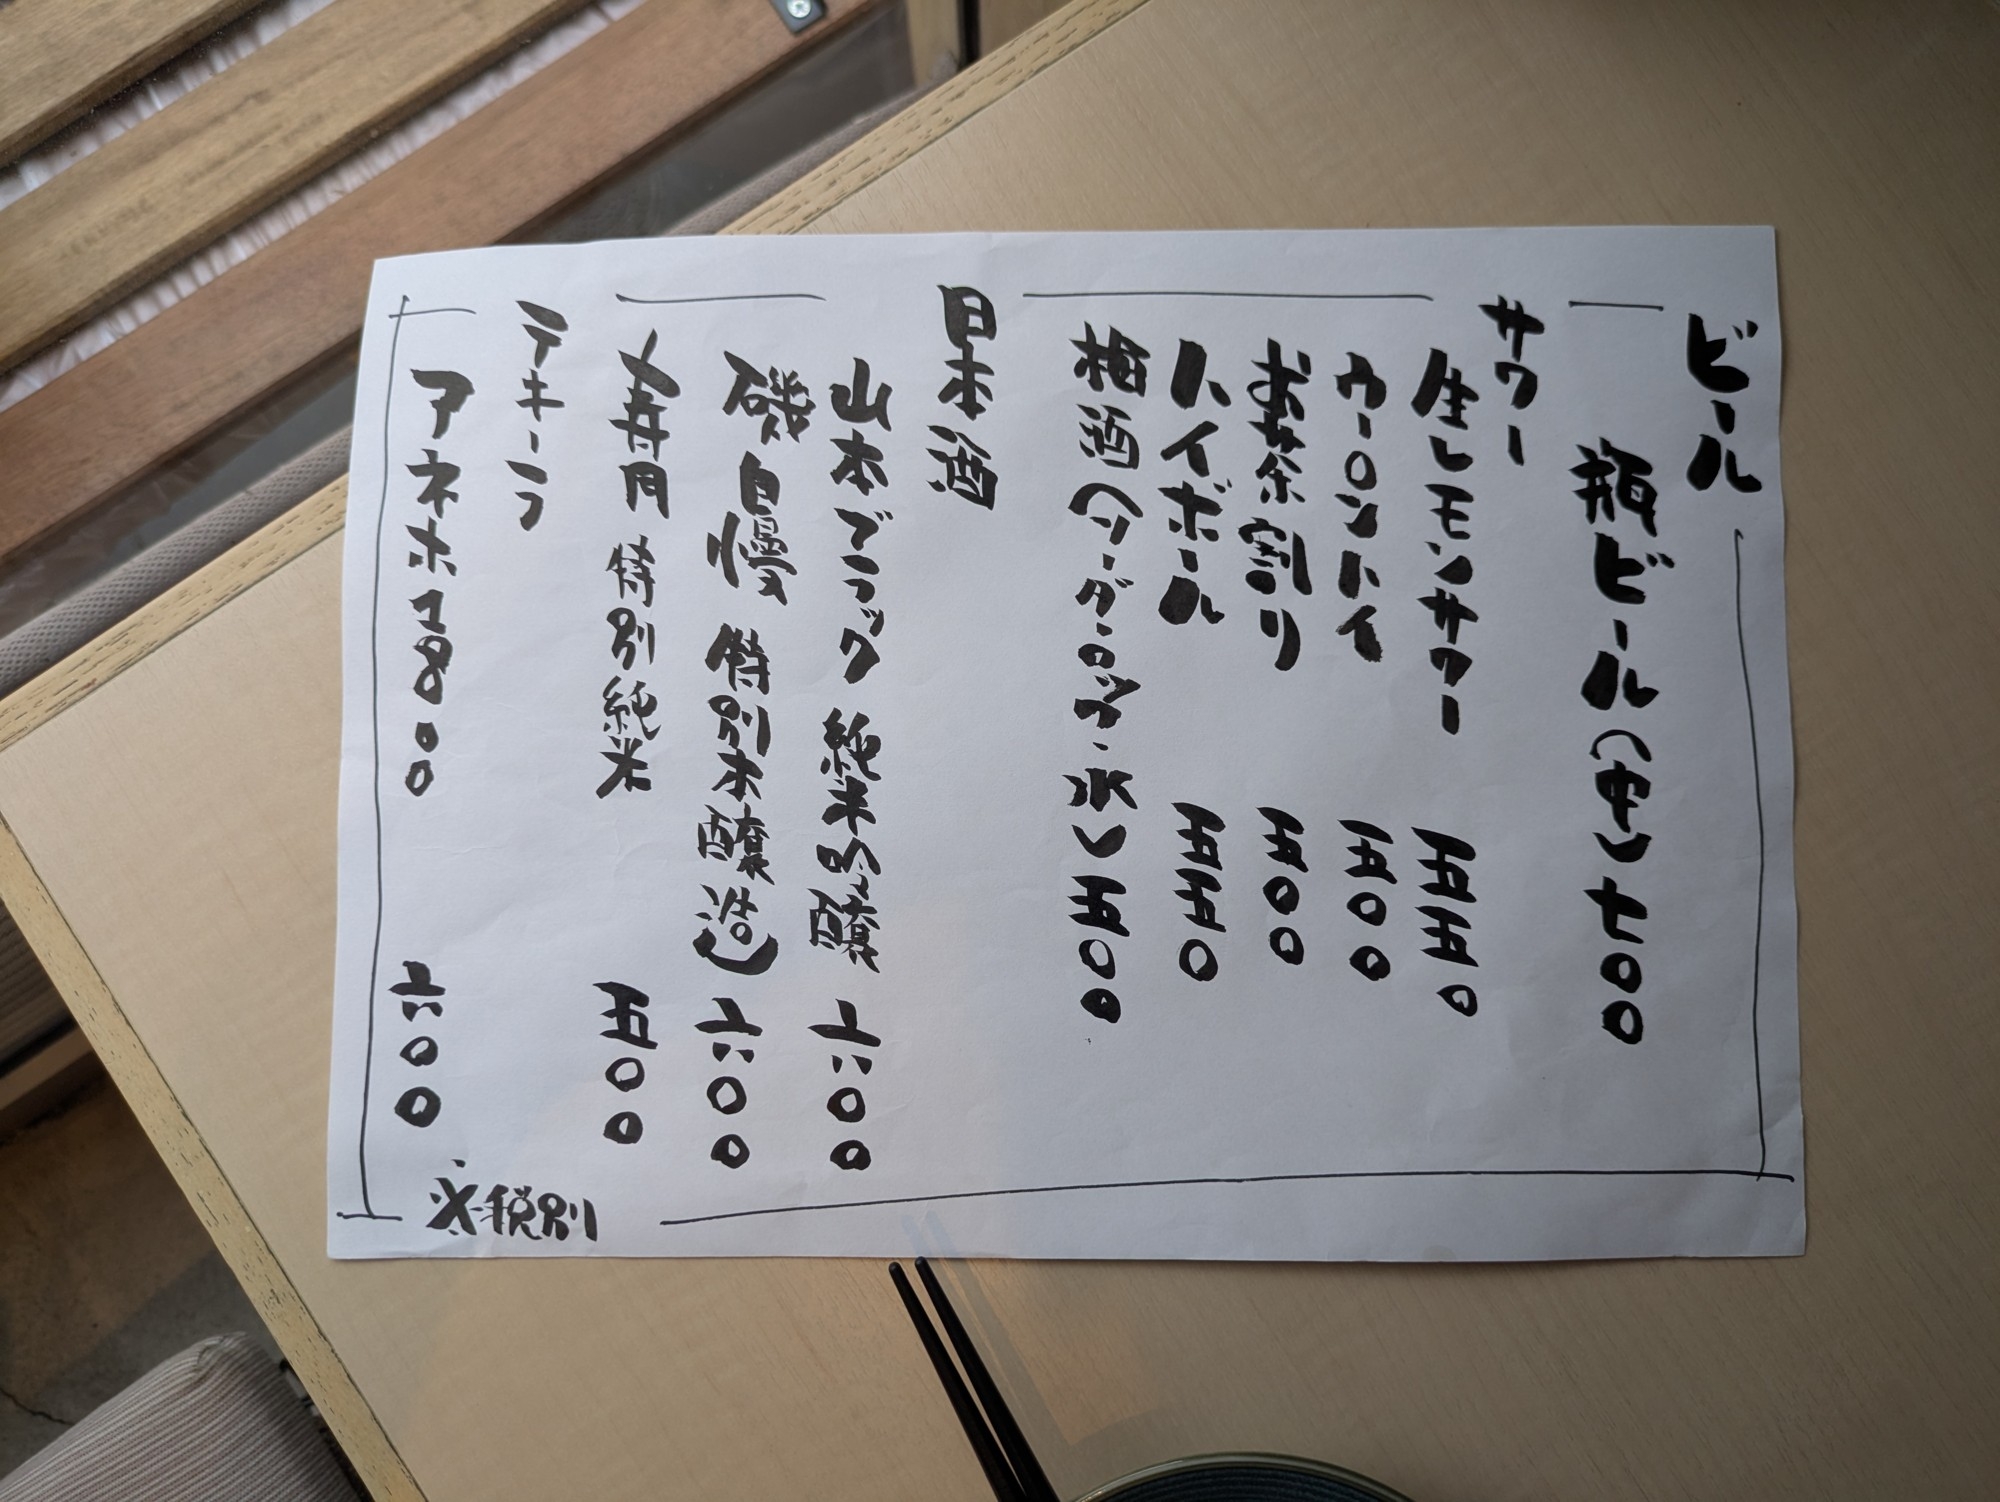 ビール
瓶ビール(中) 七〇〇
サワー
生レモンサワー 五五〇
ウーロンハイ 五〇〇
お茶割り 五〇〇
ハイボール 五五〇
梅酒(ソーダ・ロック・水) 五〇〇
日本酒
山本ブラック 純米吟醸 六〇〇
磯自慢 特別本醸造 六〇〇
〆寿月 特別純米 五〇〇
テキーラ
アネホ1800 六〇〇
※税別